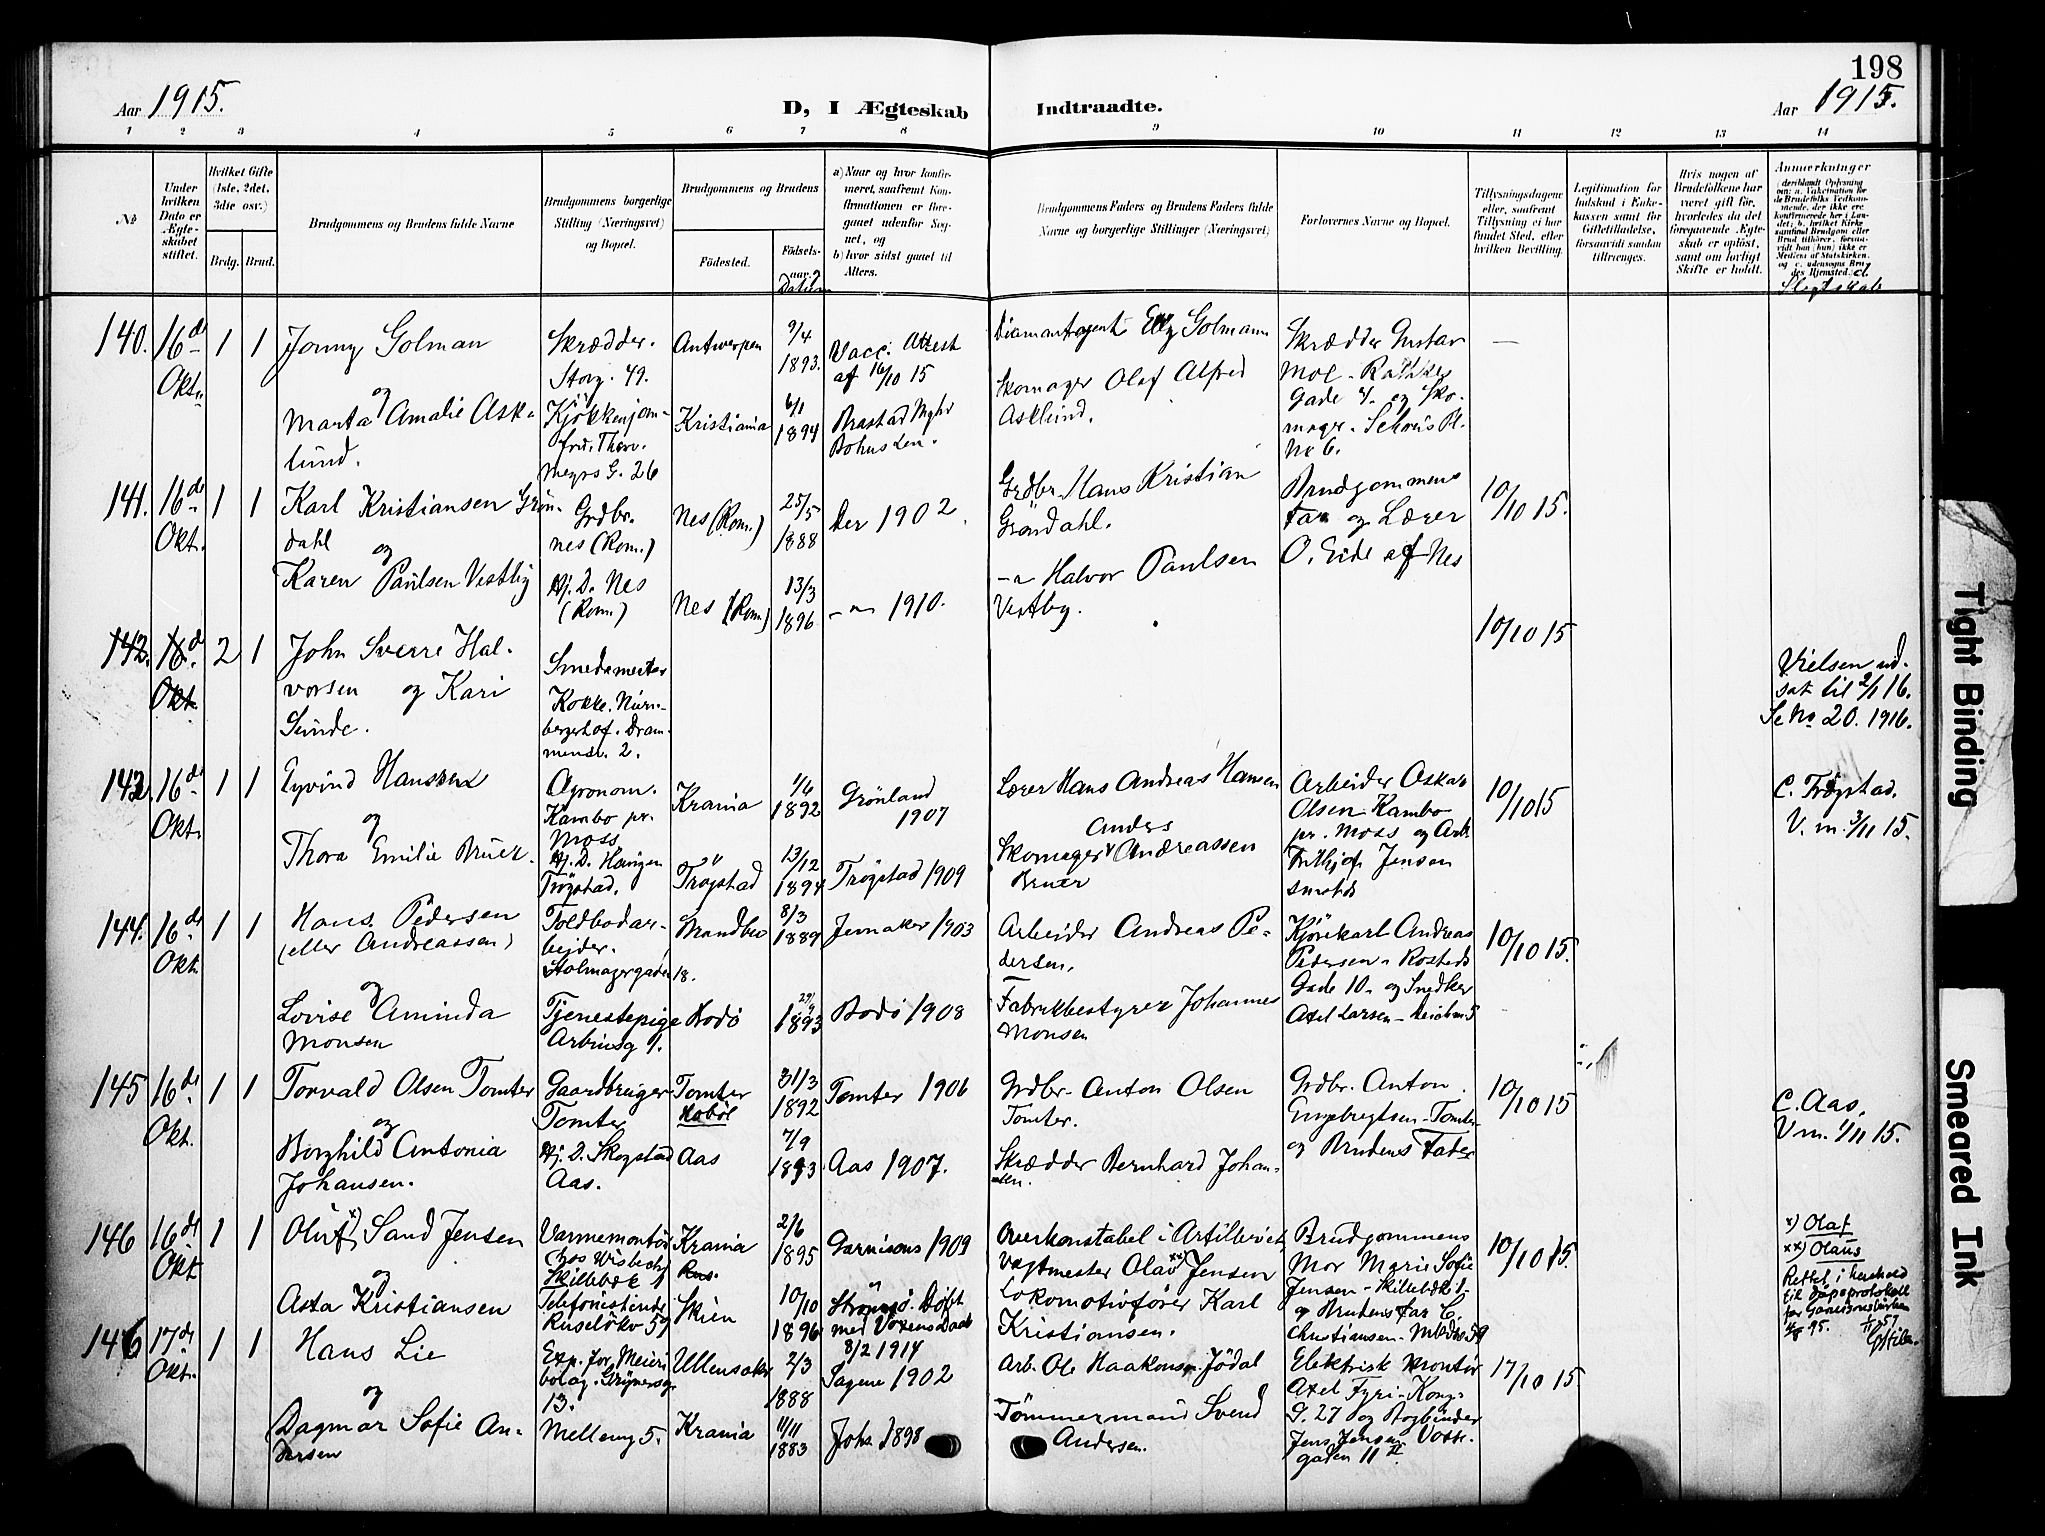 198
Aar 1915.
D, I Ægteskab Indtraadte.
Aar 1915.
1 2 3 4 5 6 7 8 9 10 11 12 13 14
No
Under hvilken Dato er Ægteskabet stiftet.
Hvilket Gifte (1ste, 2det, 3die osv.)
Brdg. Brud.
Brudgommens og Brudens fulde Navne
Brudgommens borgerlige Stilling (Næringsvei) og Bopæl.
Brudgommens og Brudens
Födested.
Födselsaar.
Datum
a) Naar og hvor konfirmeret, saafremt Konfirmationen er foregaaet udenfor Sognet, og
b) hvor sidst gaaet til Alters.
Brudgommens Faders og Brudens Faders fulde Navne og borgerlige Stillinger (Næringsvei)
Forlovernes Navne og Bopæl.
Tillysningsdagene eller, saafremt Tillysning ei har fundet Sted, efter hvilken Bevilling.
Legitimation for Indskud i Enkekassen samt for Giftetilladelse, forsaavidt saadan tiltrænges.
Hvis nogen af Brudefolkene har været gift før, hvorledes da det foregaaende Ægteskab er opløst, samt om lovligt Skifte er holdt.
Anmerkninger
(deriblandt Oplysning om: a. Vakcination for de Brudefolks Vedkommende, der ikke ere konfirmerede her i Landet; b. hvilket Kirkesamfund Brudgom eller Brud tilhører, forsaavidt han (hun) ikke er Medlem af Statskirken, og c. udensogns Brudes Hjemsted. d. Slegtskab
140. 16de Okt. 1 1
Jonny Golman
og
Marta Amalie Asklund.
Skrædder. Storg. 49.
Kjøkkenjomfru. Thorv. Meyers G. 26
Antwerpen
Kristiania
9/4 1893.
6/1 1894
Vacc. Attest af 16/10 15
Brastad Myhr Bohuslen.
Diamantagent Elly Golmann
Skomager Olaf Alfred Asklund.
Skrædder Gustav Moe - Rathkes Gade 4. og Skomager. Schous Pl. No 6.
—
141. 16de Okt. 1 1
Karl Kristiansen Gröndahl
og
Karen Paulsen Vestby
Grdbr. Nes (Rom.)
Hj. D. Nes (Rom.)
Nes (Rom.)
Nes (Rom.)
25/5 1888
13/3 1896
Der 1902.
—"— 1910.
Grdbr. Hans Kristian Gröndahl.
—"— Halvor Paulsen Vestby.
Brudgommens Far og Lærer O. Eide af Nes
10/10 15.
142. 16de Okt. 2 1
John Sverre Halvorsen og Kari Sunde.
Smedemester
Kokke. Nürnbergerhof. Drammensv. 2.
10/10 15
Vielsen udsat til 2/1 16. Se No 20. 1916.
143. 16de Okt. 1 1
Eyvind Hanssen
og
Thora Emilie Bruer.
Agronom. Kambo pr. Moss
Hj. D. Haugen Trögstad.
Krania
Trögstad
1/6 1892
13/12 1894
Grönland 1907
Trögstad 1909
Lærer Hans Andreas Hansen
Skomager Anders Andreassen Bruer
Arbeider Oskar Olsen Kambo pr. Moss og Arb. Frithjof Jensen smstds
10/10 15
C. Trøgstad. V. m. 3/11 15.
144. 16de Okt. 1 1
Hans Pedersen (eller Andreassen)
og
Lovise Aminda Monsen
Toldbodarbeider. Stolmagergaden 18.
Tjenestepige Arbinsg 1.
Bodö
8/3 1889
1893
Jevnaker 1903
Bodö 1908
Arbeider Andreas Pedersen.
Fabrikbestyrer Johannes Monsen
Kjörekarl Andreas Pedersen - Rosteds Gade 10 - og Snedker Axel Larsen -
10/10 15.
145 16de Okt. 1 1
Torvald Olsen Tomter
og
Borghild Antonia Johansen.
Gaardbruger Tomter
Hj. D. Skogstad Aas.
Tomter Hobøl
Aas
31/3 1892
7/9 1893
Tomter 1906
Aas 1907.
Grdbr. Anton Olsen Tomter.
Skrædder Bernhard Johansen.
Grdbr. Anton Engebregtsen - Tomter og Brudens Fader
10/10 15
C. Aas. V m. 1/11 15.
146 16de Okt 1 1
Oluf x) Sand Jensen
og
Asta Kristiansen
Varmemontør hos Wisbech Skillebæk 1
Telefonistinde Ruseløkv 59
Krania
Skien
2/6 1895
10/10 1896
Garnisons 1909
Strömsö. Döbt med Voxendaab 8/2 1914
Overkonstabel i Artilleriet Vagtmester Olav xx) Jensen
Lokomotivfører Karl Kristiansen.
Brudgommens Mor Marie Sofie Jensen - Skillebæk 1 - og Brudens Far C. Christiansen -
10/10 15.
x) Olaf
xx) Olaus
Rettet i henhold til dåpsprotokoll for Garnisonskirken 4/8 95.
146 17de Okt. 1 1
Hans Lie
og
Dagmar Sofie Andersen
Exp. for Meieribolag. Grünersg. 13.
Melleng 5.
Ullensaker
Krania
2/3 1888
11/11 1883
Sagene 1902
Johs 1898
Arb. Ole Haakonsen Jödal
Tömmermand Svend Andersen.
Elektrisk Montör Axel Fyri - Kong. G. 27 og Bogbinder Jens Jensen Vossegaten 11 II
17/10 15.
Tight Binding
Smeared Ink